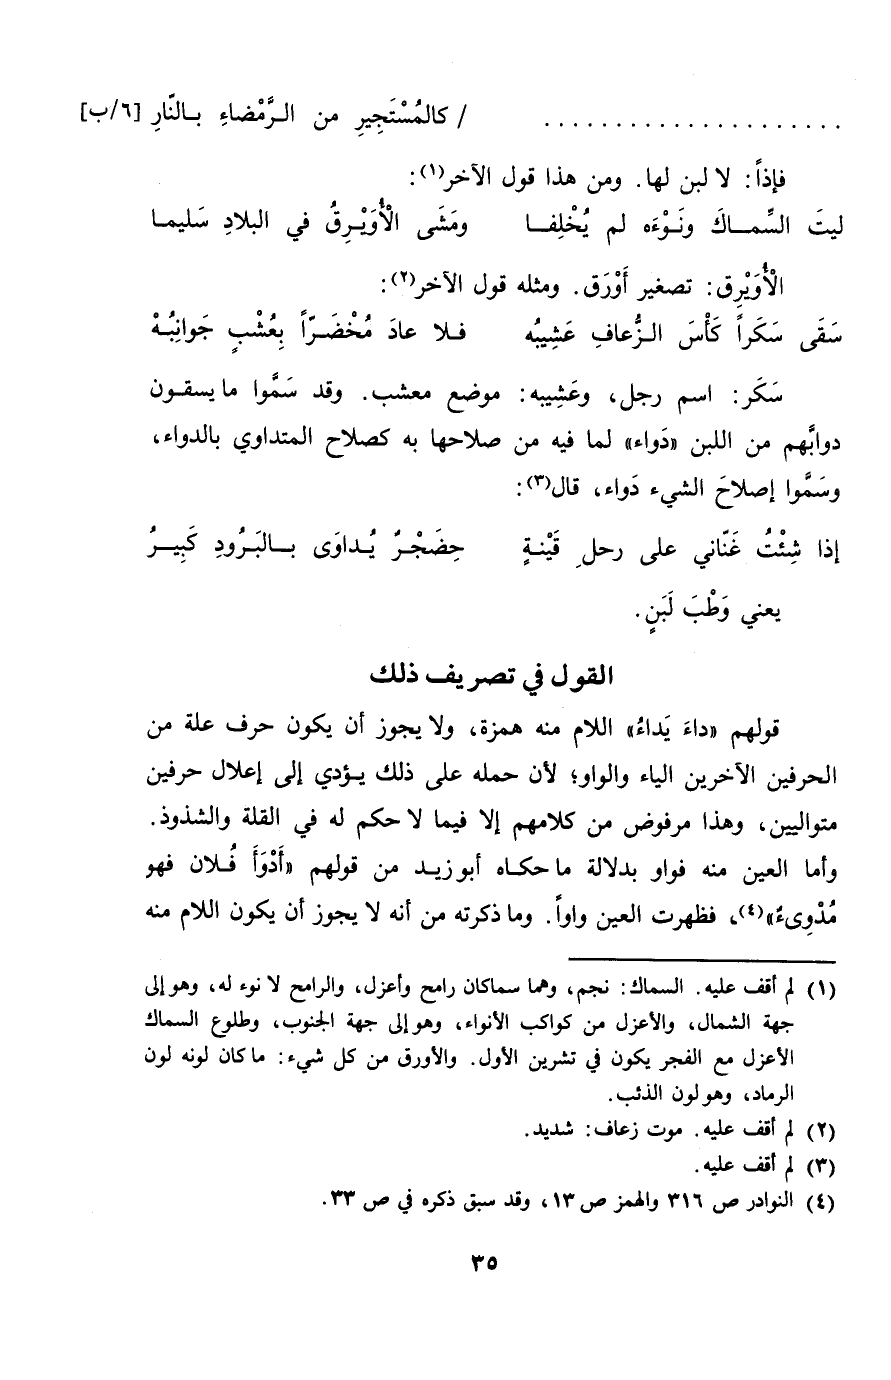 ..................... / كالمُسْتَجِيرِ من الـرَّمْضاءِ بـالنَّارِ [٦/ب]
فإذاً: لا لبن لها. ومن هذا قول الآخر(١):
ليتَ السِّمـاكَ ونَـوْءَه لم يُخْلِفـا ومَشَى الْأُوَيْـرِقُ في البلادِ سَليمـا
الْأُوَيْرِق: تصغير أَوْرَق. ومثله قول الآخر(٢):
سَقَى سَكَراً كَأْسَ الـزُّعافِ عَشِيبُه فـلا عادَ مُخْضَـرّاً بِعُشْبٍ جَوانِبُـهْ
سَكَر: اسم رجل، وعَشِيبه: موضع معشب. وقد سَمَّوا ما يسقـون
دوابَّهم من اللبن «دَواء» لما فيه من صلاحها به كصلاح المتداوي بالدواء،
وسَمَّوا إصلاحَ الشيء دَواء، قال(٣):
إذا شِئْتُ غَنّاني على رحلِ قَيْنـةٍ حِضَجْـرٌ يُـداوَى بـالبَرُودِ كَبِيـرُ
يعني وَطْبَ لَبَنٍ.
القول في تصريف ذلك
قولهم «داءَ يَداءُ» اللام منه همزة، ولا يجوز أن يكون حرف علة من
الحرفين الآخرين الياء والواو؛ لأن حمله على ذلك يـؤدي إلى إعلال حرفين
متواليين، وهذا مرفوض من كلامهم إلا فيما لا حكم له في القلة والشذوذ.
وأما العين منه فواو بدلالة ما حكـاه أبو زيـد من قولهم «أَدْوَأَ فُـلان فهو
مُدْوِىءٌ»(٤)، فظهرت العين واواً. وما ذكرته من أنه لا يجوز أن يكون اللام منه
(١) لم أقف عليه. السماك: نجم، وهما سماكان رامح وأعزل، والرامح لا نوء له، وهو إلى
جهة الشمال، والأعزل من كواكب الأنواء، وهو إلى جهة الجنوب، وطلوع السماك
الأعزل مع الفجر يكون في تشرين الأول. والأورق من كل شيء: ما كان لونه لون
الرماد، وهو لون الذئب.
(٢) لم أقف عليه. موت زعاف: شديد.
(٣) لم أقف عليه.
(٤) النوادر ص ٣١٦ والهمز ص ١٣، وقد سبق ذكره في ص ٣٣.
٣٥